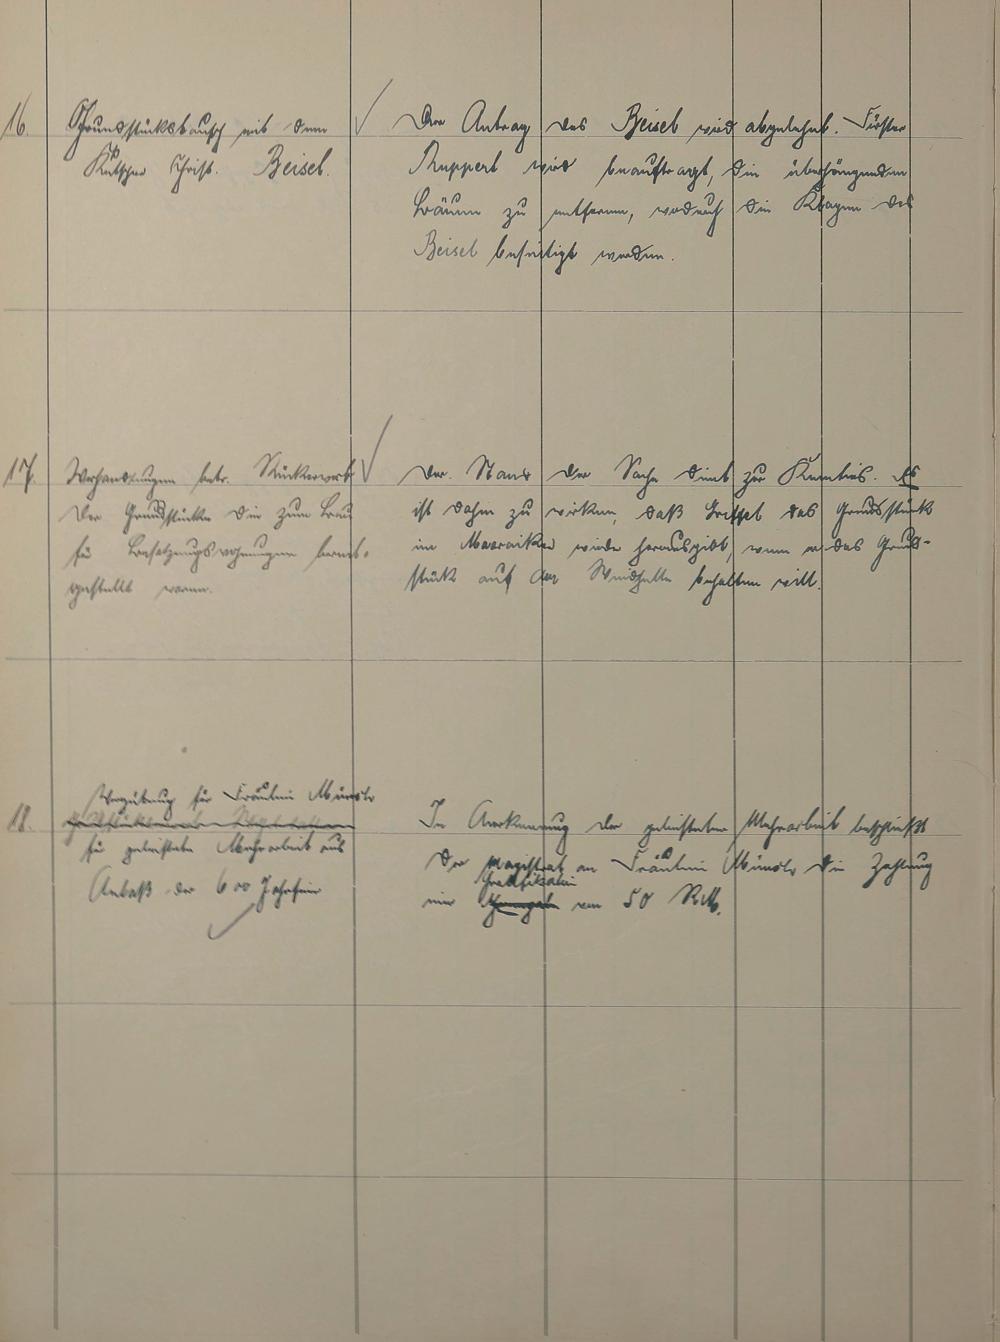 16.
Grundstückstausch mit dem
Kutscher Christ. Beisel.
Der Antrag des Beisel wird abgelehnt. Förster
Ruppert wird beauftragt, die überhängenden
Bäume zu entfernen, wodurch die Klagen des
Beisel beseitigt werden.
17.
Verhandlungen betr. Rückerwerb
der Grundstücke die zum Bau
für Besatzungswohnungen bereit-
gestellt waren.
Der Stand der Sache dient zur Kenntnis. Es
ist dahin zu wirken, daß das Grundstück
im wieder herausgibt, wenn er das Grund-
stück auf der behalten will.
18.
Vergütung für Fräulein
für geleistete Mehrarbeit aus
Anlaß der 600 Jahrfeier
In Anerkennung der geleisteten Mehrarbeit beschließt
der Magistrat an Fräulein die Zahlung
Gratifikation
einer von 50 RM.